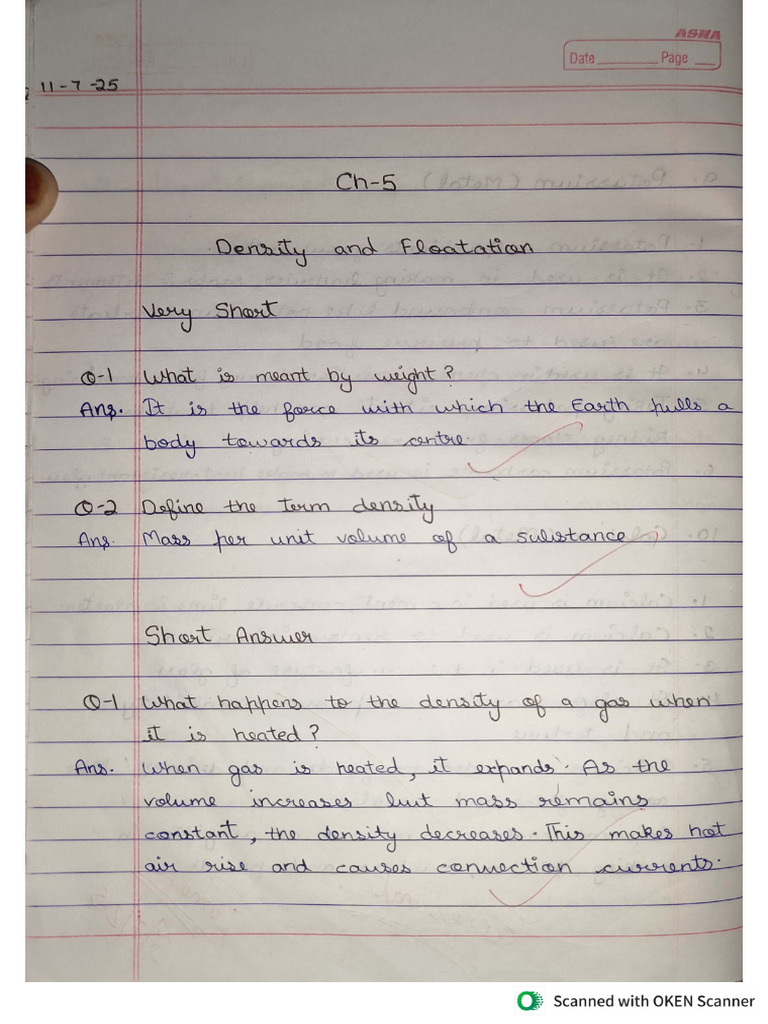 ASHA
Date Page
11-7-25
Ch-5
Density and Floatation
Very Short
Q-1 What is meant by weight?
Ans. It is the force with which the Earth pulls a
body towards its centre
Q-2 Define the term density
Ans. Mass per unit volume of a substance
Short Answer
Q-1 What happens to the density of a gas when
it is heated?
Ans. When gas is heated, it expands. As the
volume increases but mass remains
constant, the density decreases. This makes hot
air rise and causes convection currents.
Scanned with OKEN Scanner